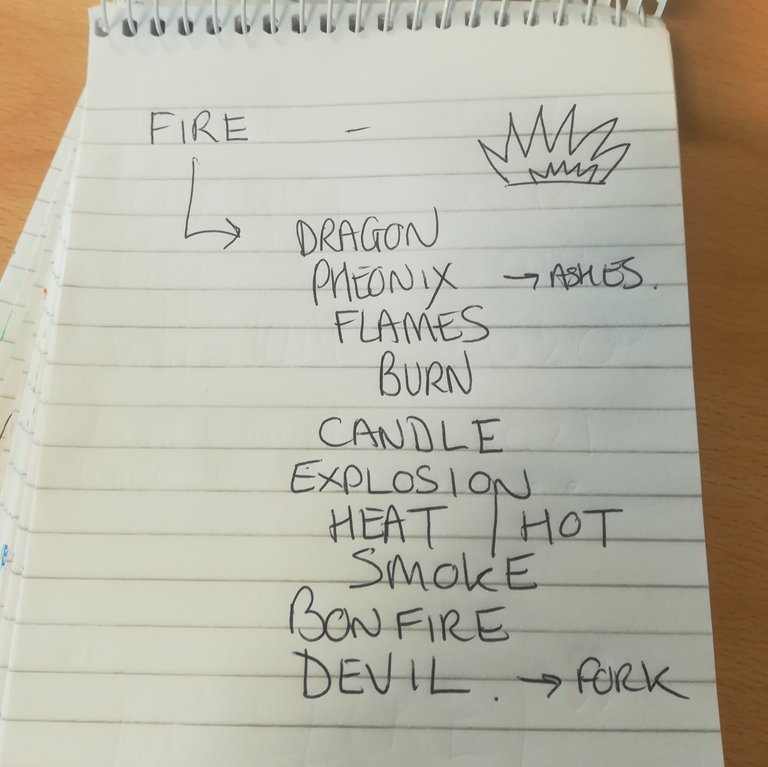 FIRE -
DRAGON
PHEONIX → ASHES.
FLAMES
BURN
CANDLE
EXPLOSION
HEAT / HOT
SMOKE
BONFIRE
DEVIL. → FORK